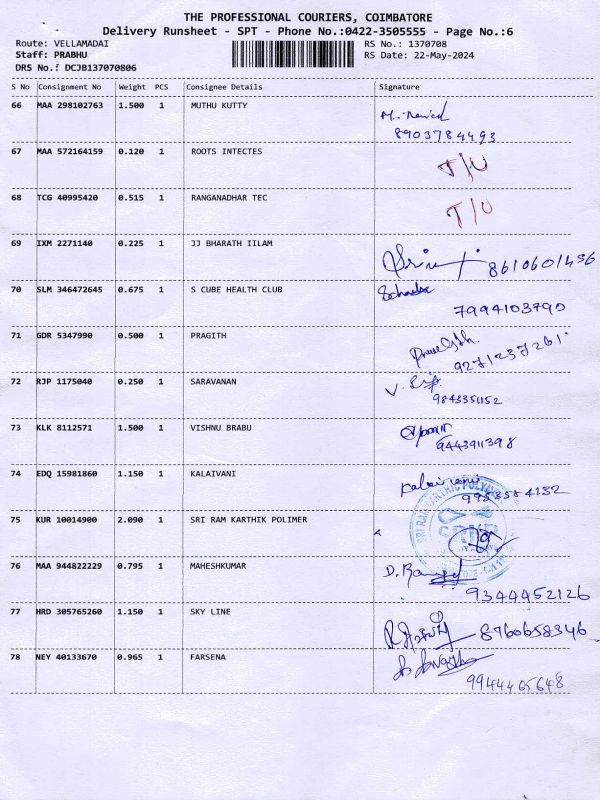 THE PROFESSIONAL COURIERS, COIMBATORE
Delivery Runsheet - SPT - Phone No.:0422-3505555 - Page No.:6
Route: VELLAMADAI RS No.: 1370708
Staff: PRABHU RS Date: 22-May-2024
DRS No.: DCJB137070806
S No Consignment No Weight PCS Consignee Details Signature
66 MAA 298102763 1.500 1 MUTHU KUTTY
8903784493
67 MAA 572164159 0.120 1 ROOTS INTECTES T/U
68 TCG 40995420 0.515 1 RANGANADHAR TEC T/U
69 IXM 2271140 0.225 1 JJ BHARATH IILAM
8610601436
70 SLM 346472645 0.675 1 S CUBE HEALTH CLUB
7994103790
71 GDR 5347990 0.500 1 PRAGITH
9271237261
72 RJP 1175040 0.250 1 SARAVANAN
9843351152
73 KLK 8112571 1.500 1 VISHNU BRABU
9443911398
74 EDQ 15981860 1.150 1 KALAIVANI
Kalaivani
75 KUR 10014900 2.090 1 SRI RAM KARTHIK POLIMER
76 MAA 944822229 0.795 1 MAHESHKUMAR
9344452126
77 HRD 305765260 1.150 1 SKY LINE
8760658346
78 NEY 40133670 0.965 1 FARSENA
9944465648